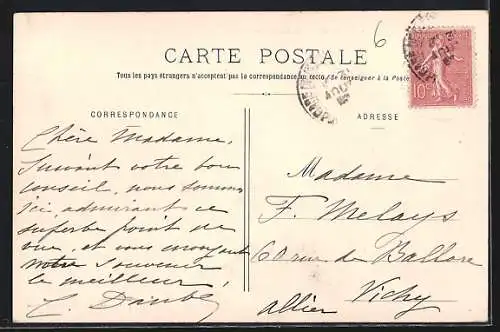 6
CARTE POSTALE
Tous les pays étrangers n'acceptent pas la correspondance au recto, (Se renseigner à la Poste
CORRESPONDANCE
Chère Madame,
Suivant votre bon
conseil, nous sommes
ici, admirant ce
superbe point de
vue, et vous envoyant
notre souvenir
le meilleur,
ADRESSE
Madame
F. Melays
60 rue de Ballore
Vichy
Allier
10